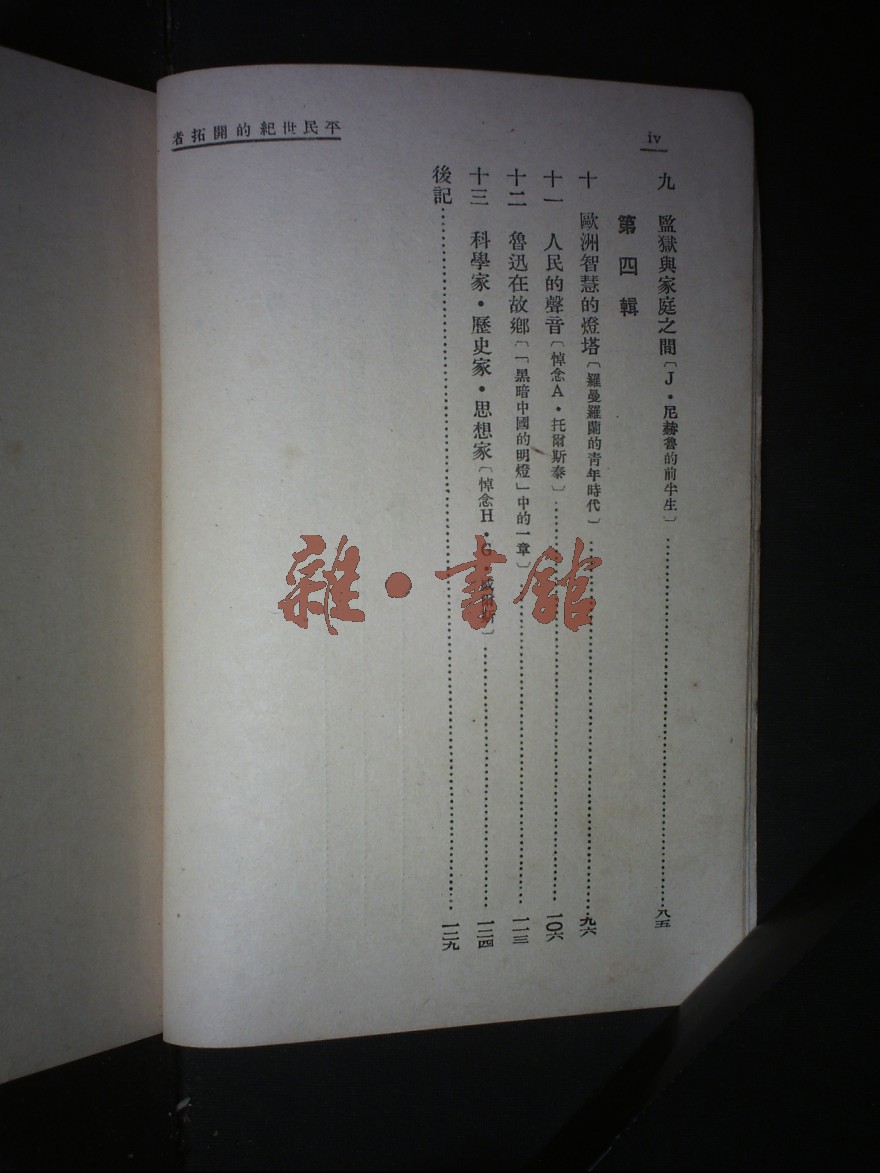 iv
平民世紀的開拓者
九 監獄與家庭之間〔J·尼赫魯的前半生〕……八五
第四輯
十 歐洲智慧的燈塔〔羅曼羅蘭的青年時代〕……九六
十一 人民的聲音〔悼念A·托爾斯泰〕……一〇六
十二 魯迅在故鄉〔「黑暗中國的明燈」中的一章〕……一一三
十三 科學家·歷史家·思想家〔悼念H·G·〕……一二四
後記……一二九
雜·書館